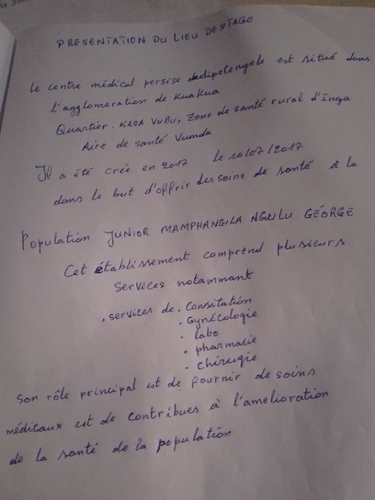 PRESENTATION DU LIEU DE STAGE
Le centre médical persise est situé dans
l'agglomeration de KuaKua
Quartier. KASA VUBU, Zone de santé rural d'Inga
Aire de santé Vuonda
Il a été crée en 2017 le 10/07/2017
dans le but d'offrir des soins de santé à la
Population JUNIOR MAMPHANGILA NGULU GEORGE
Cet établissement comprend plusieurs
Services notammant
. services de. Consitation
. Gynécologie
. Labo
. pharmacie
. chirugie
Son rôle principal est de Fournir de soins
médicaux est de contribues à l'amelioration
de la santé de la population